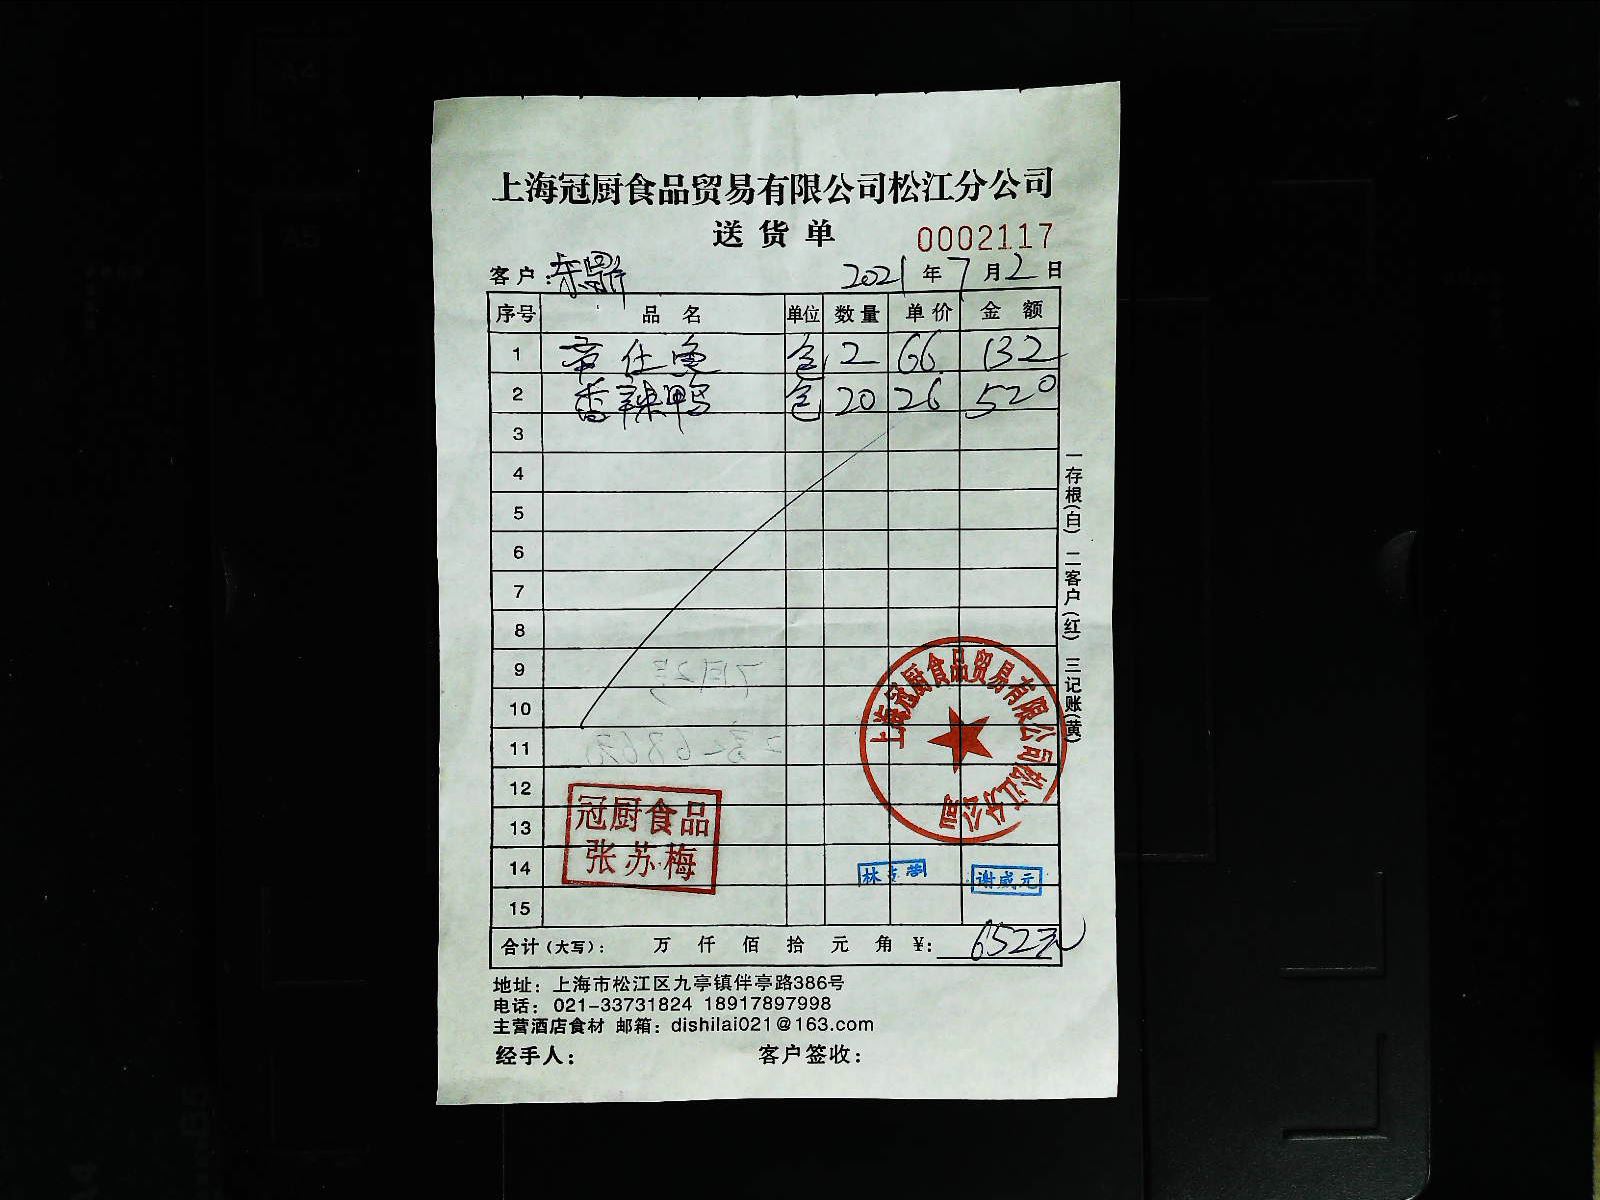 上海冠厨食品贸易有限公司松江分公司
送货单
0002117
客户: 东鼎
2021年7月2日
序号 品名 单位 数量 单价 金额
1 帝仕鱼 包 2 66 132
2 香辣鸭 包 20 26 520
3
4
5
6
7
8
9
10
11
12
13
14
15
一存根(白) 二客户(红) 三记账(黄)
上海冠厨食品贸易有限公司松江分公司
冠厨食品
张苏梅
林
谢威元
合计(大写): 万 仟 佰 拾 元 角 ¥: 652元
地址: 上海市松江区九亭镇伴亭路386号
电话: 021-33731824 18917897998
主营酒店食材 邮箱: dishilai021@163.com
经手人: 客户签收: